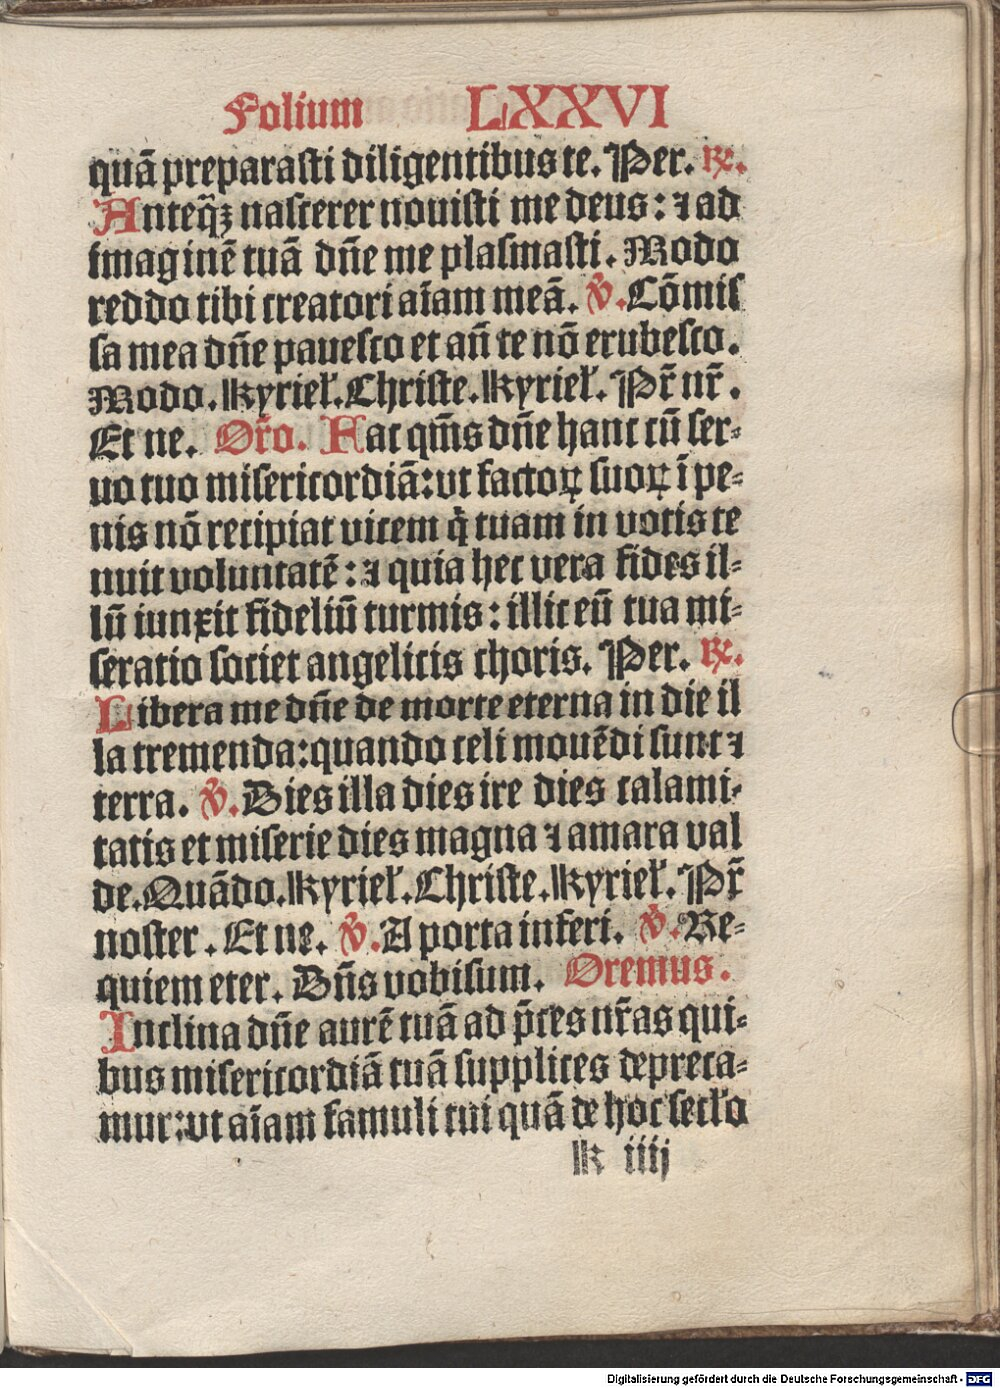 Folium LXXVI
quã preparasti diligentibus te. Per. ℟.
Anteq̃ꝫ nascerer nouisti me deus: ⁊ ad
imaginē tuā dñe me plasmasti. Modo
reddo tibi creatori aĩam meã. ℣. Cõmis
sa mea dñe pauesco et añ te nõ erubesco.
Modo. Kyrieł. Christe. Kyrieł. Pr̃ nr̃.
Et ne. Or̃o. Fac qm̃s dñe hanc cũ ser⸗
uo tuo misericordiã: ut factoꝝ suoꝝ ĩ pe⸗
nis nõ recipiat vicem q̇ tuam in votis te
nuit voluntatē: ⁊ quia hec vera fides il⸗
lũ iunxit fideliũ turmis: illic eũ tua mi⸗
seratio societ angelicis choris. Per. ℟.
Libera me dñe de morte eterna in die il
la tremenda: quando celi mouẽdi sunt ⁊
terra. ℣. Dies illa dies ire dies calami⸗
tatis et miserie dies magna ⁊ amara val
de. Quãdo. Kyrieł. Christe. Kyrieł. Pr̃
noster. Et ne. ℣. A porta inferi. ℣. Re⸗
quiem eter. Dñs vobisum. Oremus.
Inclina dñe aurē tuã ad p̃ces nr̃as qui⸗
bus misericordiã tuã supplices depreca⸗
mur: ut aĩam famuli tui quã de hoc secło
k iiij
Digitalisierung gefördert durch die Deutsche Forschungsgemeinschaft - DFG